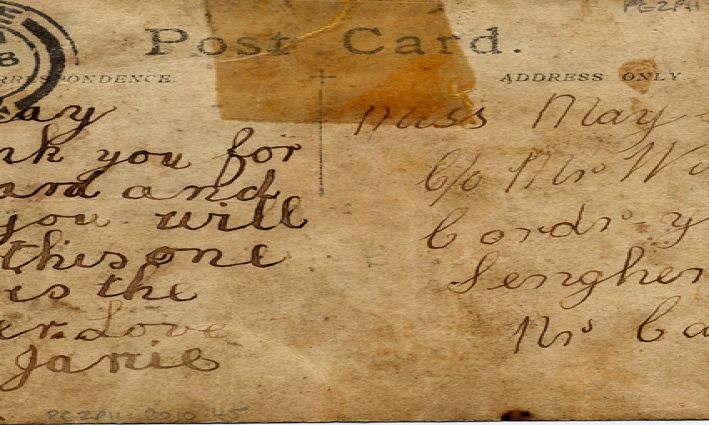 PEZPH
Post Card.
RRESPONDENCE.
ADDRESS ONLY
ay
nk you for
ard and
you will
this one
is the
er. Love
Janie
Miss May
C/o Mr Wi
Cordr-y
Senghen
Nr Ca
PEZPH: 2010.45